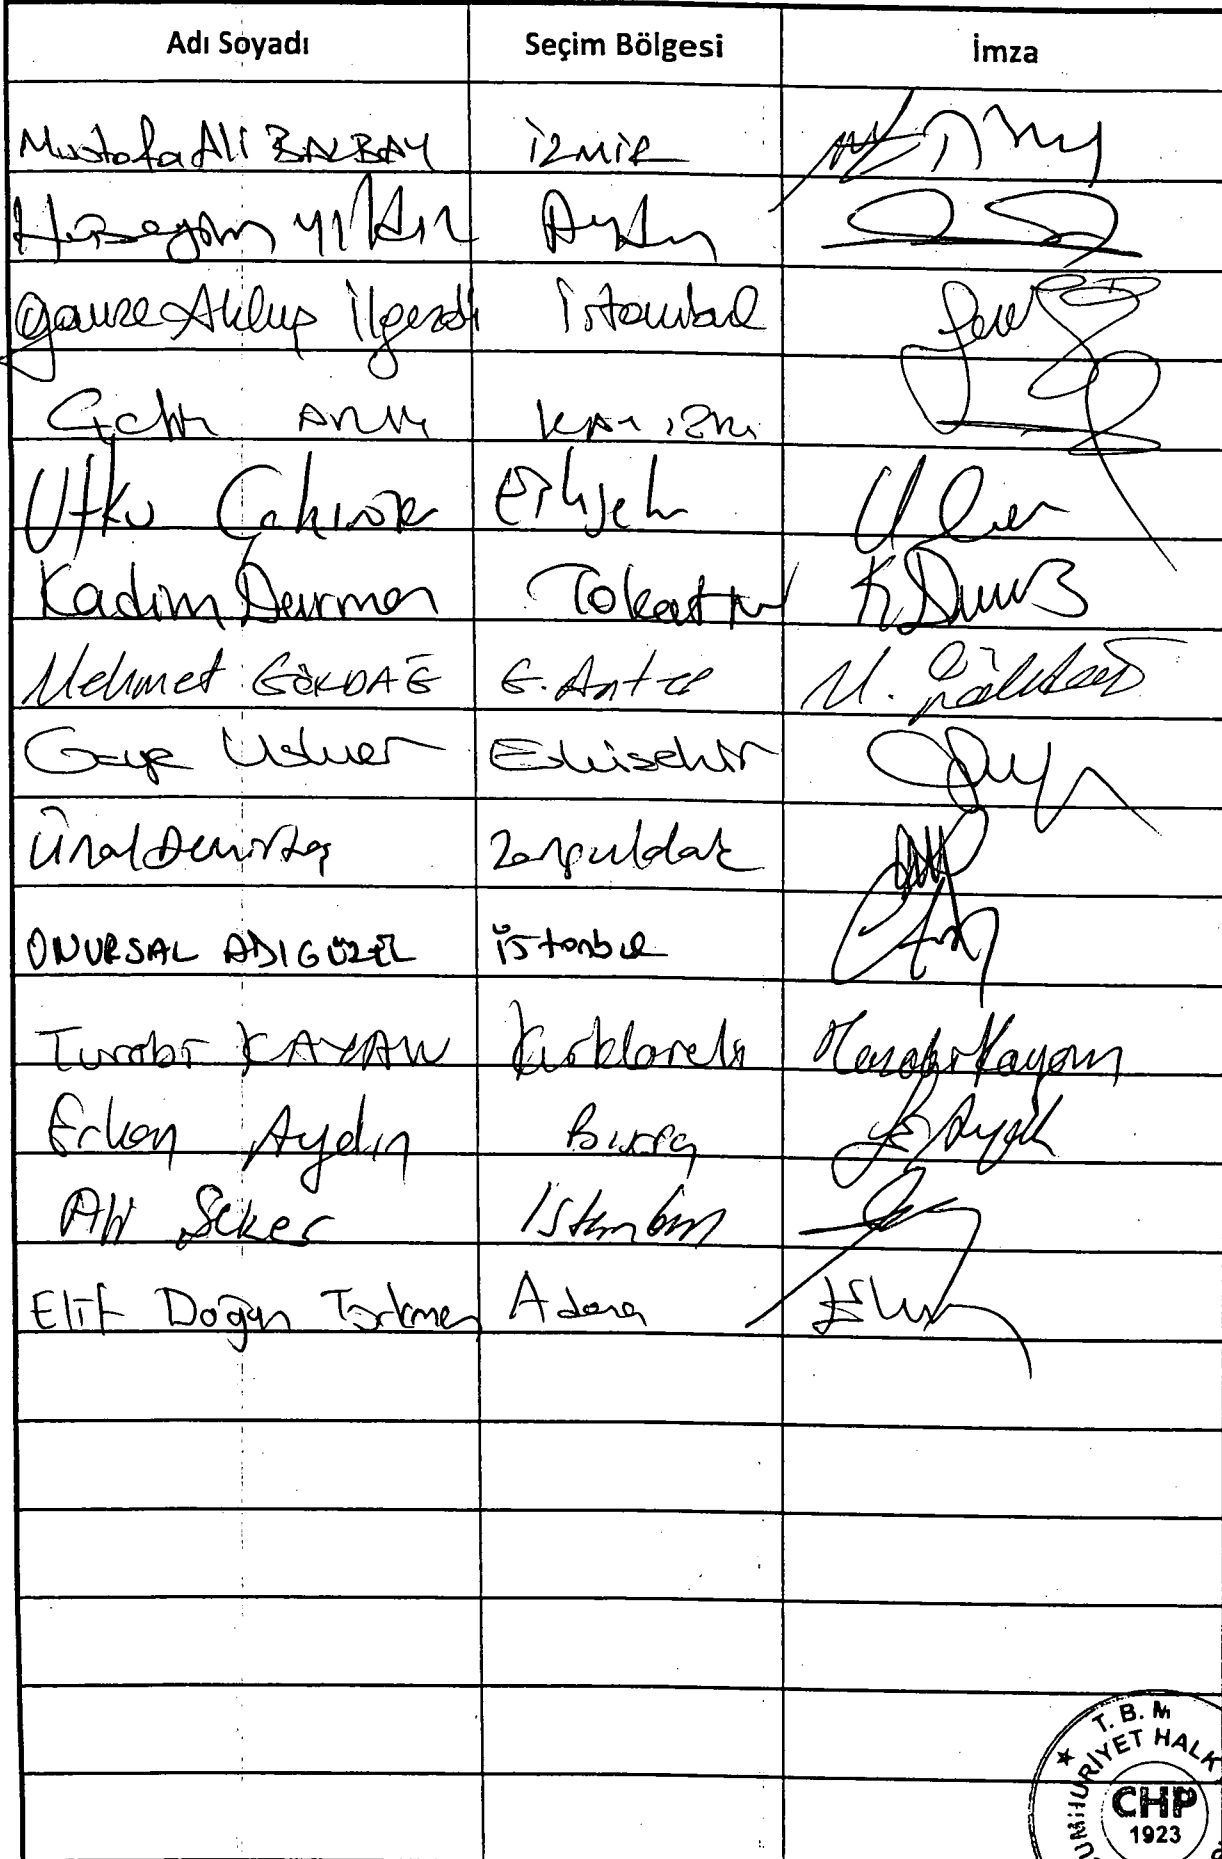 Adı Soyadı Seçim Bölgesi İmza
Mustafa Ali BALBAY İZMİR
Hüseyin Yıldız Aydın
Gamze Akkuş İlgezdi İstanbul
Çetin Arık KAYSERİ
Utku Çakırözer Eskişehir
Kadim Durmaz Tokat K. Durmaz
Mehmet GÖKDAĞ G.Antep M. Gökdağ
Gaye Usluer Eskişehir
Ünal Demirtaş Zonguldak
ONURSAL ADIGÜZEL İstanbul
Turabi KAYAN Kırklareli Turabi Kayan
Erkan Aydın Bursa E. Aydın
Ali Şeker İstanbul
Elif Doğan Türkmen Adana
T. B. M
CUMHURİYET HALK
CHP
1923